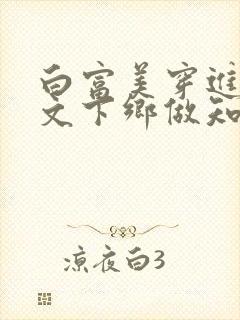 白富美穿進
文下鄉做知
凉夜白3